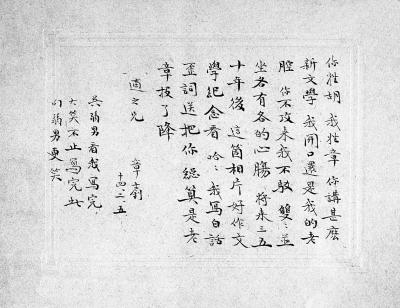 你姓胡 我姓章 你講甚麽
新文學 我開口還是我的老
腔 你不攻來我不駁 雙〻並
坐各有各的心腸 將來三五
十年後 這箇相片好作文
學紀念看 哈〻我寫白話
歪詞送把你總算是老
章投了降
適之兄 章釗
十四、二、五
吳弱男看我寫完
大笑不止寫完此
句弱男更笑